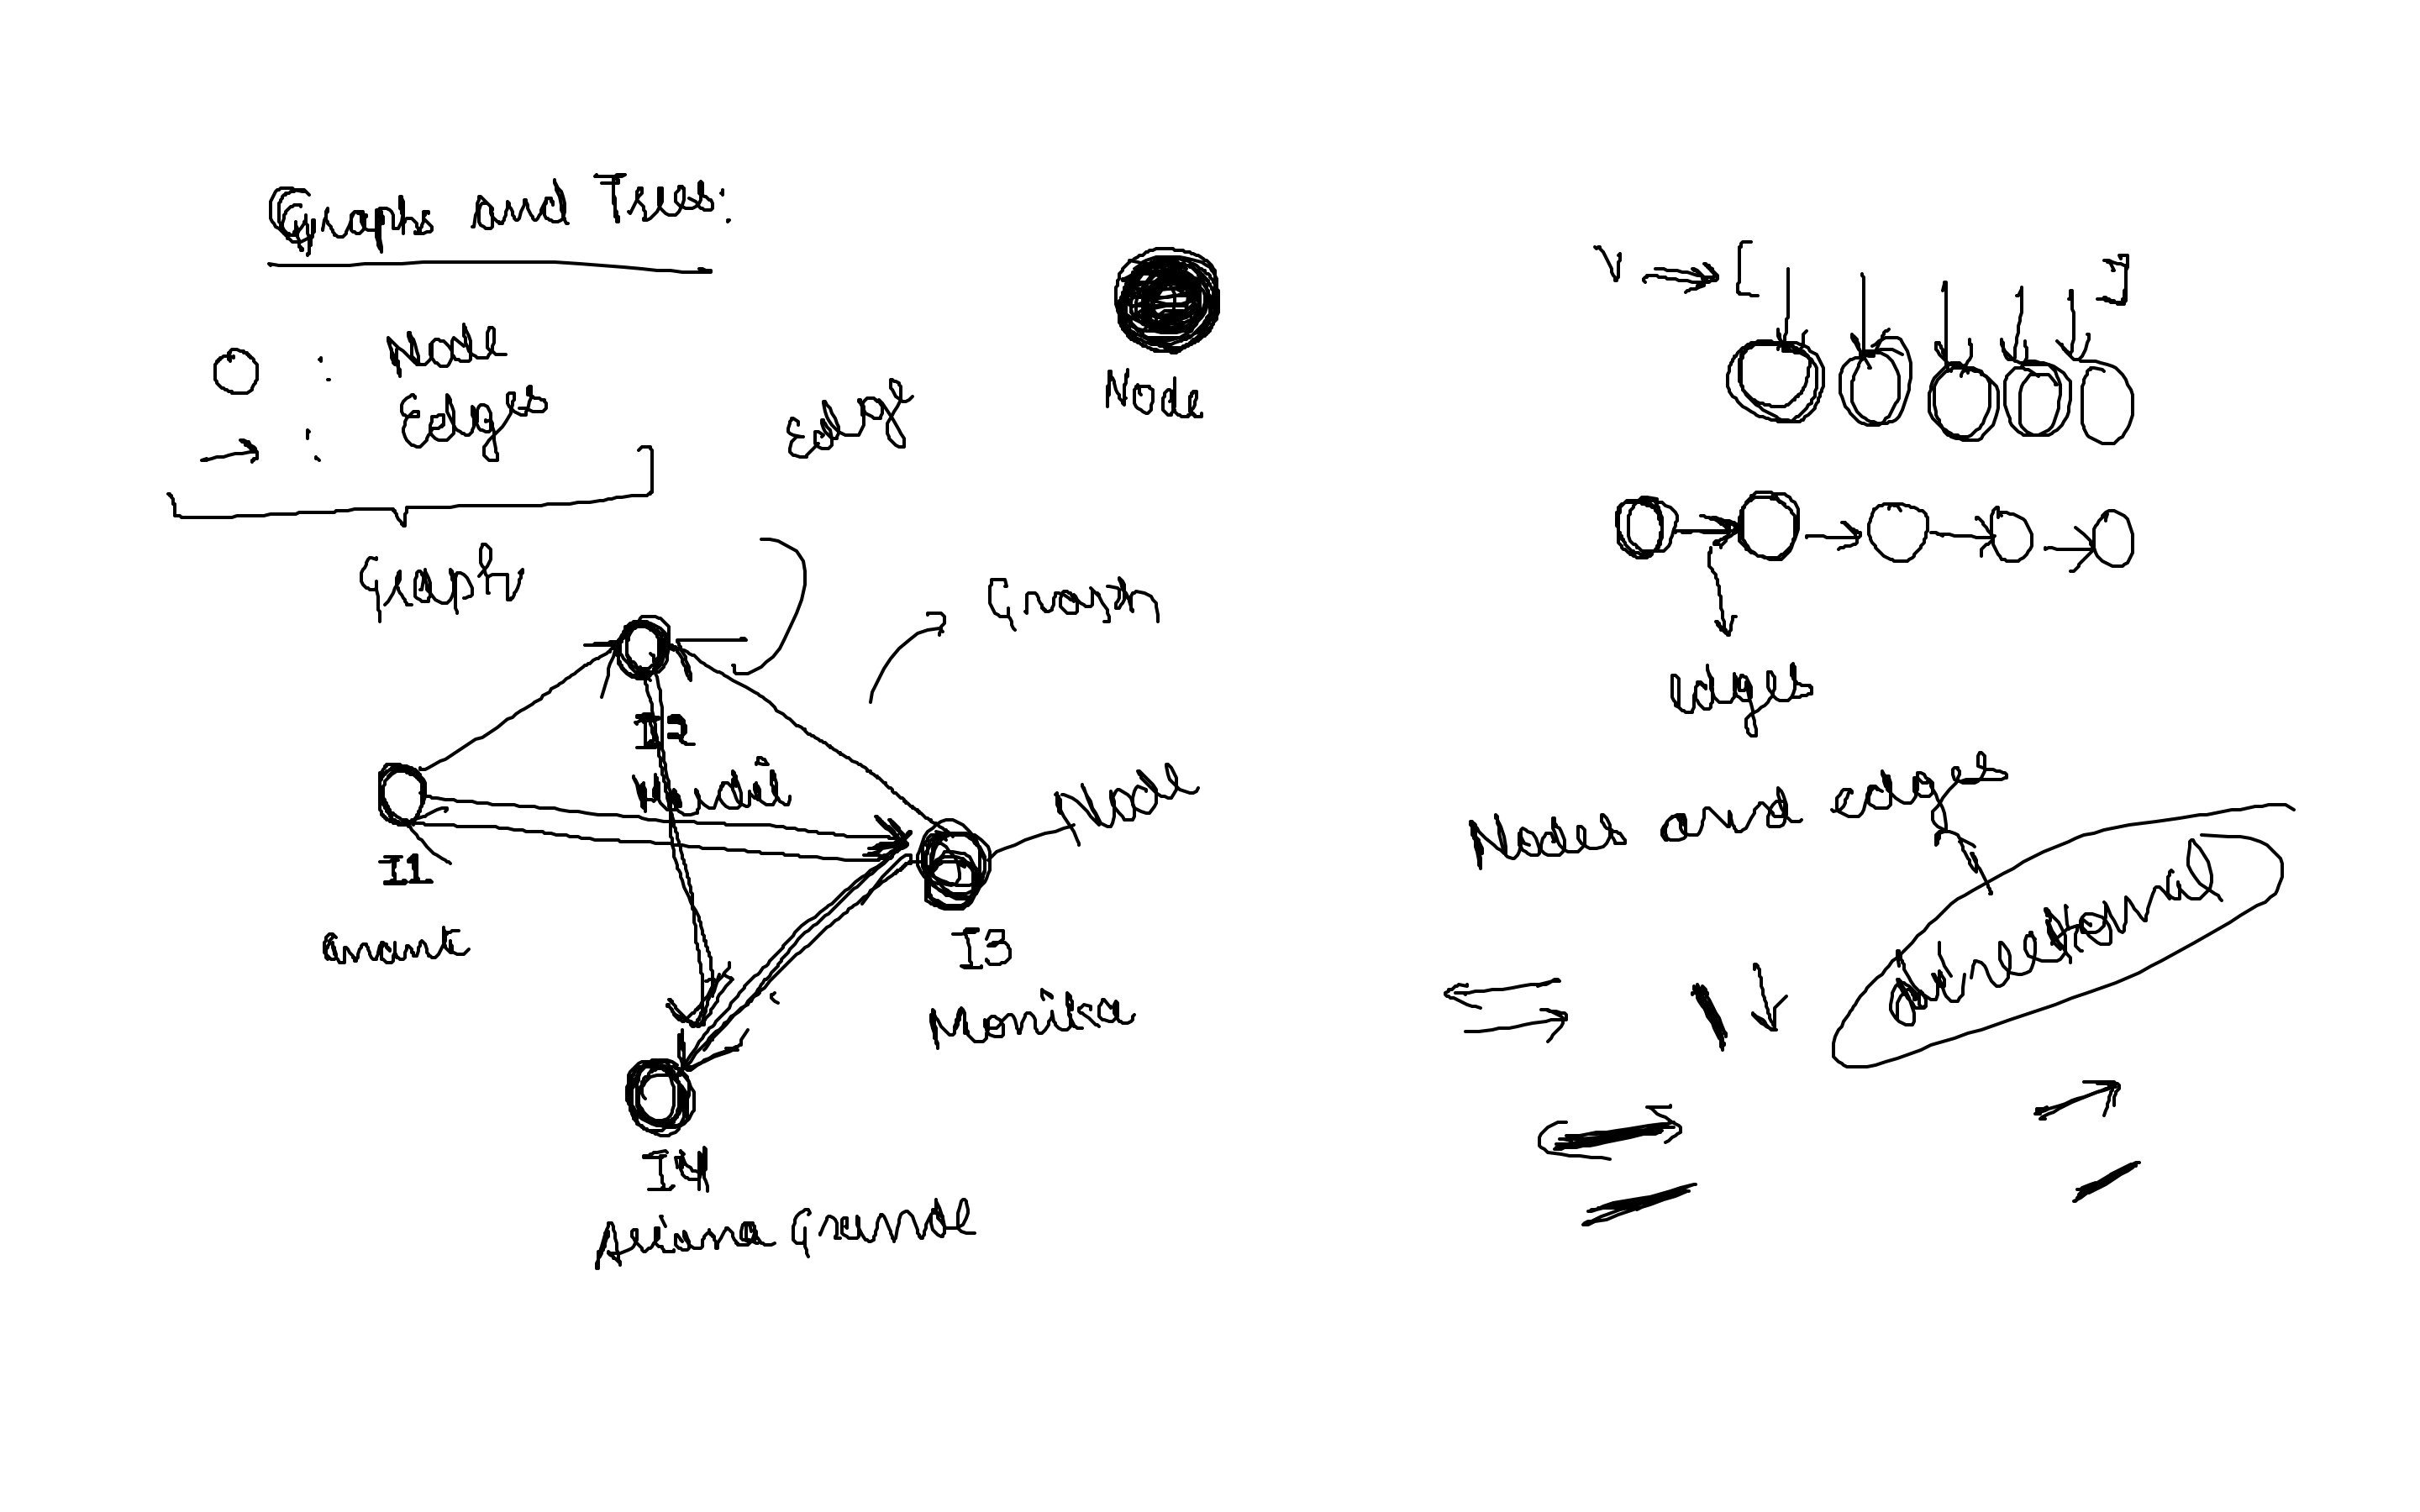 Graphs and Trees:
○ : Node
→ : Edges
Graph
Edge
Node
Graph
I2
Node
I1
I3
Monika
I4
Ariana Grande
V → [ ]
edges
Nodes and edges
directional